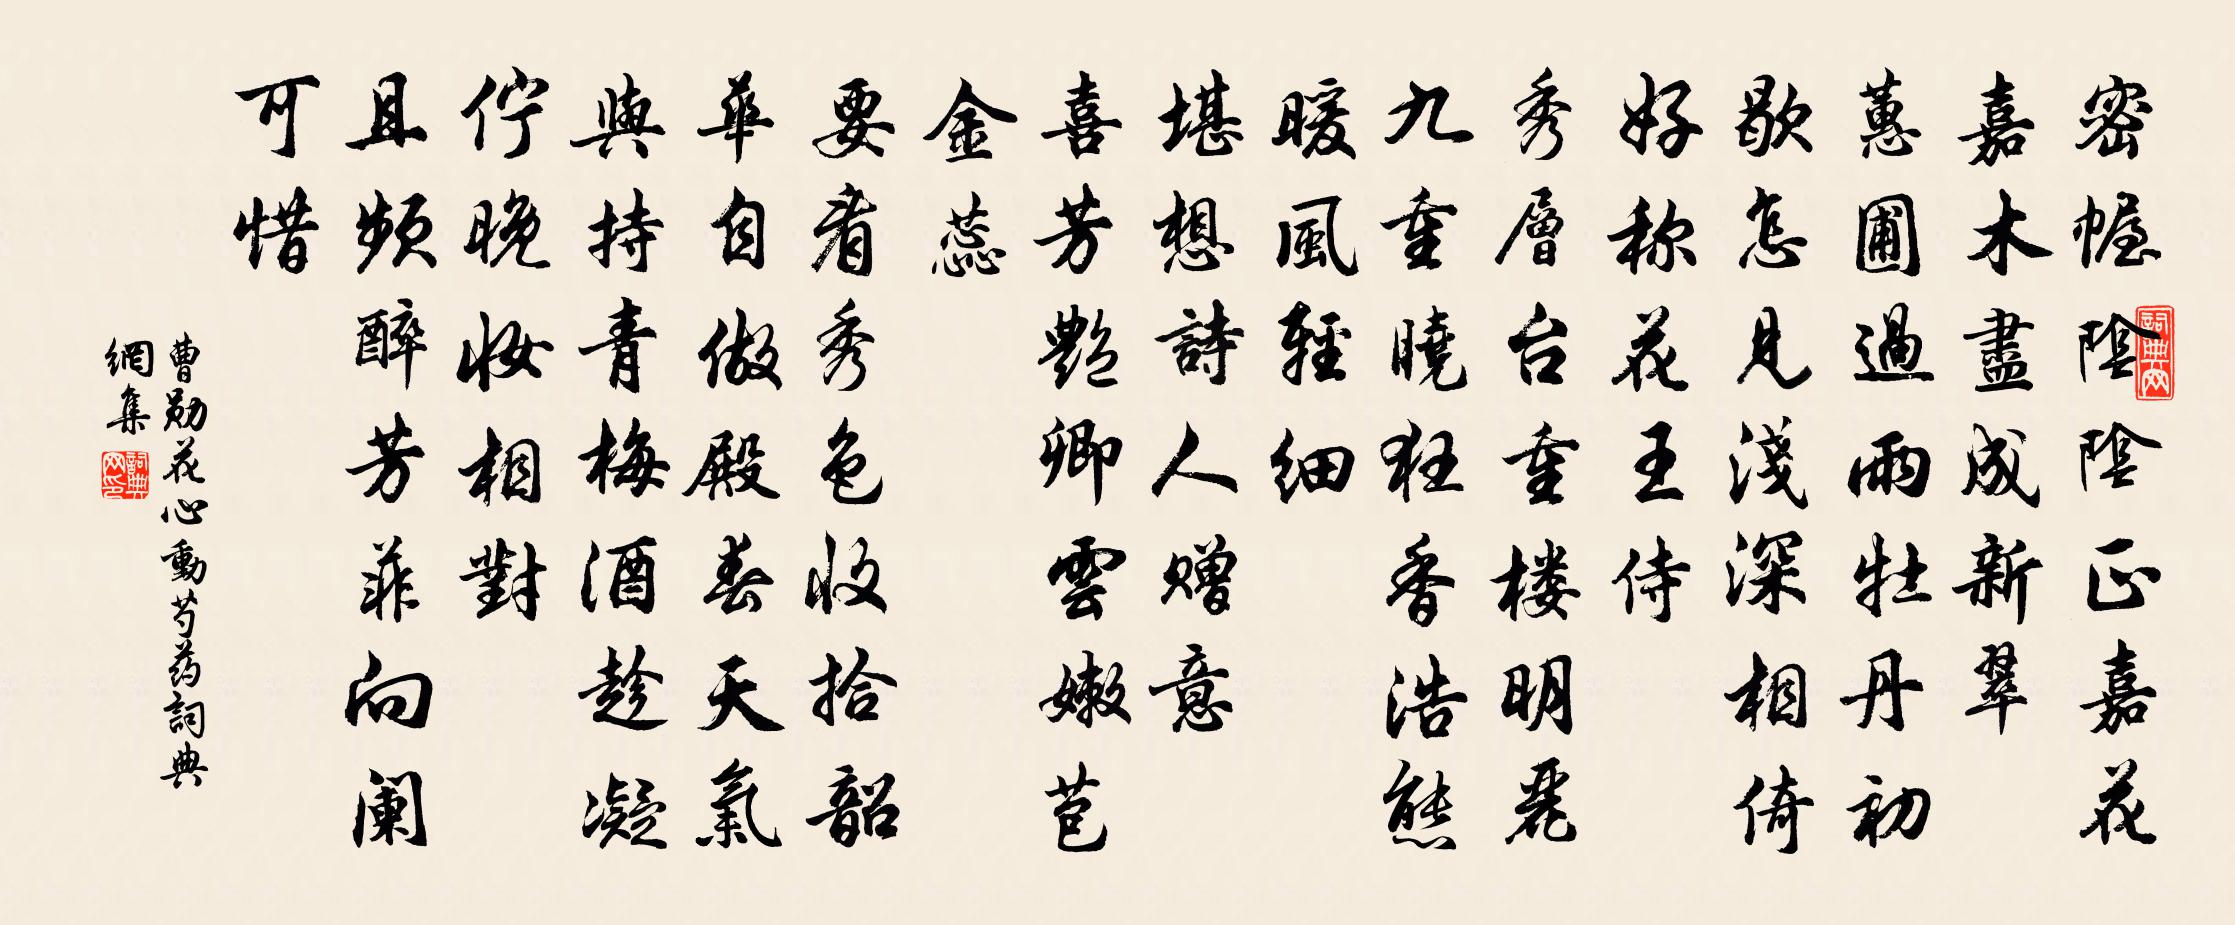 密幄陰陰正嘉花
嘉木盡成新翠
蕙圃過雨牡丹初
歇怎見淺深相倚
好称花王侍
秀層台重楼明麗
九重曉狂香浩態
暖風輕細
堪想詩人赠意
喜芳艷卿雲嫩苞
金蕊
要看秀色收拾韶
華自做殿春天氣
與持青梅酒趁凝
佇晚妝相對
且頻醉芳菲向阑
可惜
曹勛花心動芍药詞典
網集
詞典网